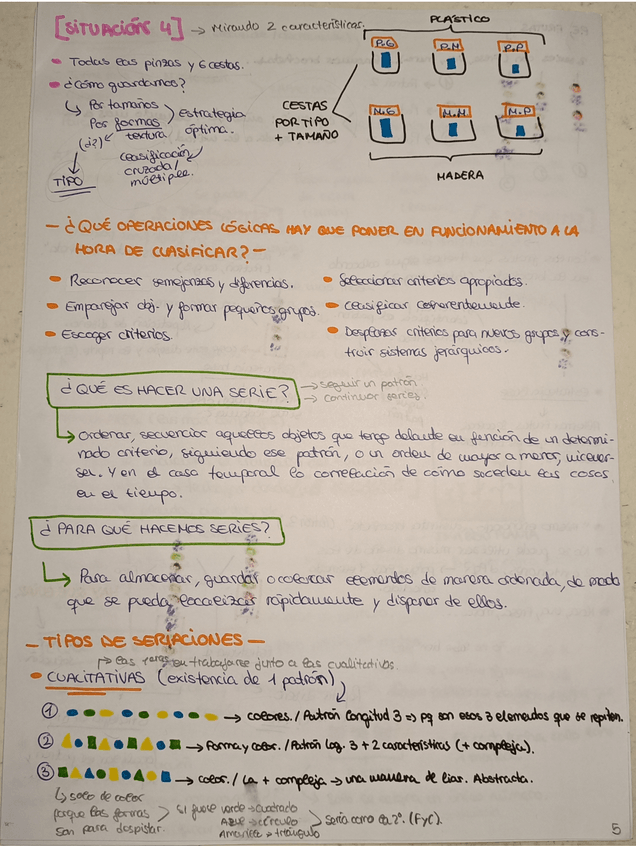 [SITUACIÓN 4] → Mirando 2 características.
• Todas las pinzas y 6 cestas.
• ¿Cómo guardamos?
↳ Por tamaños
Por formas
(di?) textura
estrategia
óptima.
clasificación
cruzada/
múltiple.
TIPO
PLÁSTICO
P.G P.M P.P
CESTAS
POR TIPO
+ TAMAÑO
M.G M.M M.P
MADERA
- ¿QUÉ OPERACIONES LÓGICAS HAY QUE PONER EN FUNCIONAMIENTO A LA
HORA DE CLASIFICAR? -
• Reconocer semejanzas y diferencias.
• Emparejar obj. y formar pequeños grupos.
• Escoger criterios.
• Seleccionar criterios apropiados.
• Clasificar coherentemente.
• Desplazar criterios para nuevos grupos y cons-
truir sistemas jerárquicos.
¿QUÉ ES HACER UNA SERIE?
→ seguir un patrón.
→ continuar series.
↳ Ordenar, secuenciar aquellos objetos que tengo delante en función de un determi-
nado criterio, siguiendo ese patrón, o un orden de mayor a menor, vicever-
sa. Y en el caso temporal la correlación de cómo suceden las cosas
en el tiempo.
¿PARA QUÉ HACEMOS SERIES?
↳ Para almacenar, guardar o colocar elementos de manera ordenada, de modo
que se pueda localizar rápidamente y disponer de ellos.
- TIPOS DE SERIACIONES -
junto a las cualitativas
• CUALITATIVAS (existencia de 1 patrón)
① → colores. / Patrón longitud 3 => pq son esos 3 elementos que se repiten.
② → Forma y color. / Patrón log. 3 + 2 características (+ compleja).
③ → color. / La + compleja → una manera de liar. Abstracta.
↳ solo de color
porque las formas
son para despistar.
Si fuese verde → cuadrado
Azul → círculo
Amarillo → triángulo
sería como la 2ª. (F y C).
5